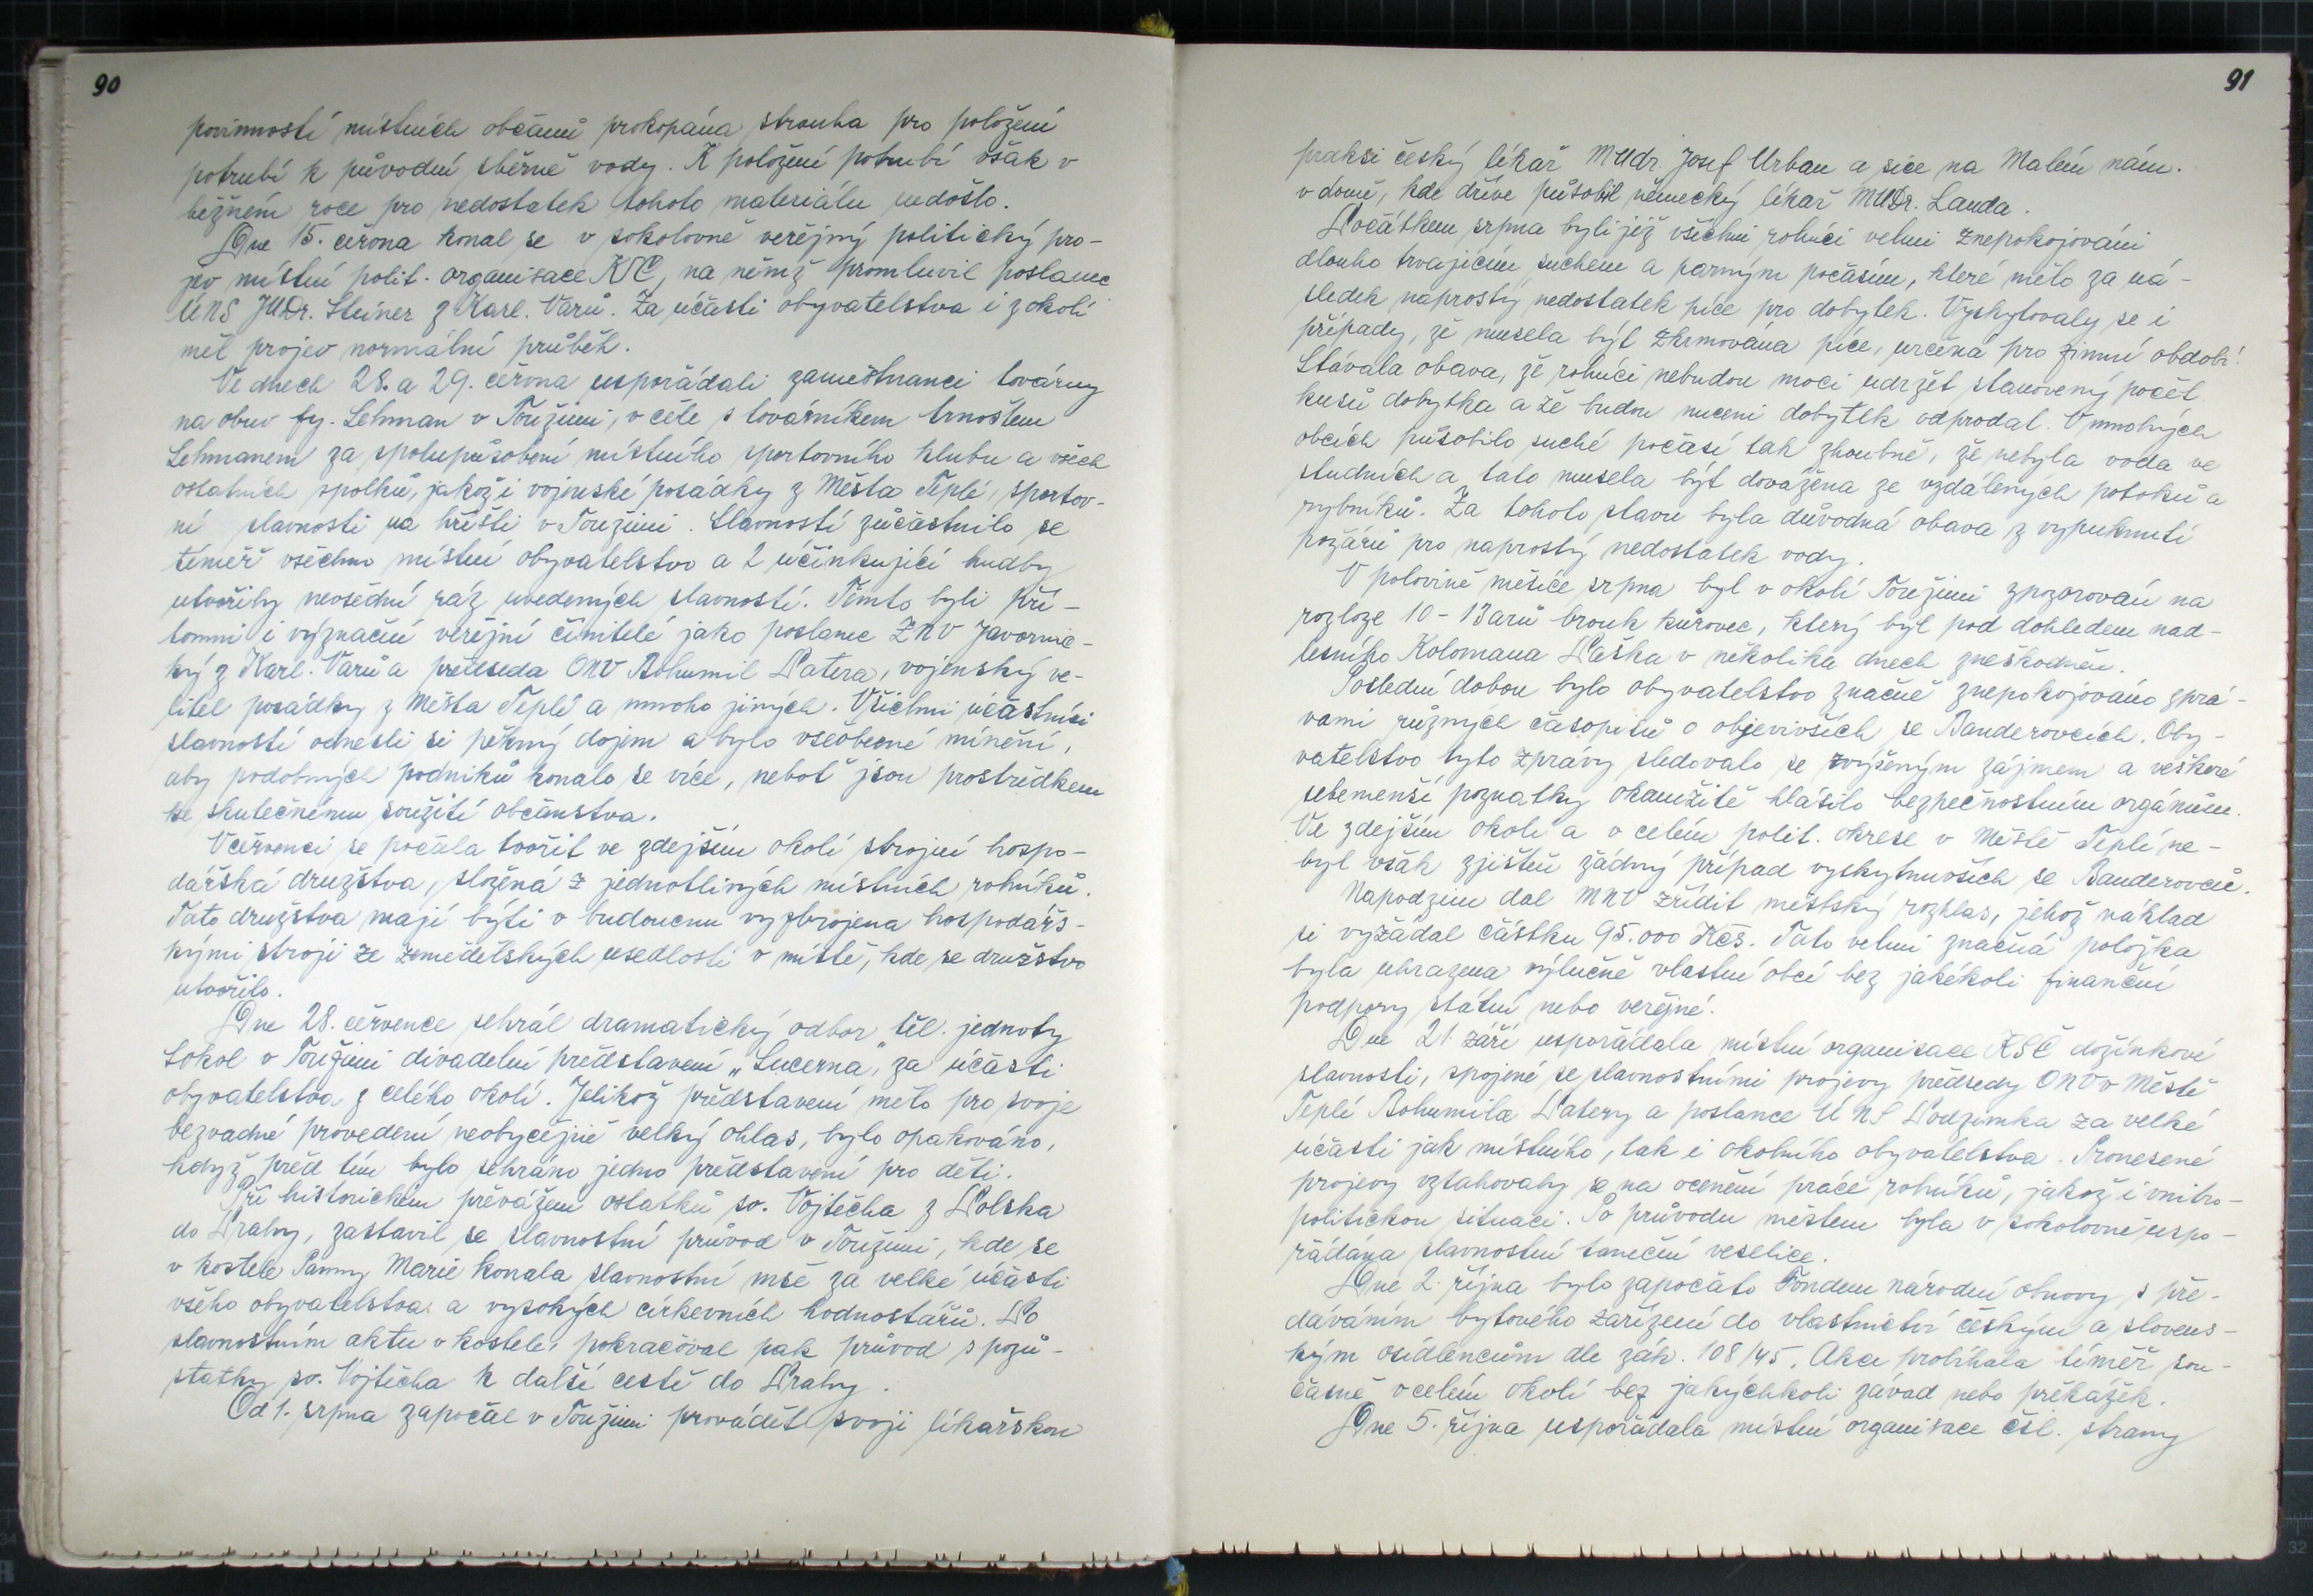 90
povinností místních občanů prokopána strouha pro položení
potrubí k původní sběrně vody. K položení potrubí však v
běžném roce pro nedostatek tohoto materiálu nedošlo.
Dne 15. června konal se v sokolovně veřejný politický pro-
jev místní polit. organisace KSČ, na němž promluvil poslanec
ÚNS JUDr. Steiner z Karl. Varů. Za účasti obyvatelstva i z okolí
měl projev normální průběh.
Ve dnech 28. a 29. června uspořádali zaměstnanci továrny
na obuv fy. Lehman v Toužimi, v čele s továrníkem Arnoštem
Lehmanem za spolupůsobení místního sportovního klubu a všech
ostatních spolků, jakož i vojenské posádky z Města Teplé, sportov-
ní slavnosti na hřišti v Toužimi. Slavností zúčastnilo se
téměř všechno místní obyvatelstvo a 2 účinkující hudby
utvořily nevšední ráz uvedených slavností. Těmto byli pří-
tomni i význační veřejní činitelé jako poslanec ZNV Javornic-
ký z Karl. Varů a předseda ONV Bohumil Patera, vojenský ve-
litel posádky z Města Teplé a mnoho jiných. Všichni účastníci
slavností odnesli si pěkný dojem a bylo všeobecné mínění,
aby podobných podniků konalo se více, neboť jsou prostředkem
ke skutečnému soužití občanstva.
V červenci se počala tvořit ve zdejším okolí strojní hospo-
dářská družstva, složená z jednotlivých místních rolníků.
Tato družstva mají býti v budoucnu vyzbrojena hospodářs-
kými stroji ze zemědělských usedlostí v místě, kde se družstvo
utvořilo.
Dne 28. července sehrál dramatický odbor těl. jednoty
Sokol v Toužimi divadelní představení „Lucerna", za účasti
obyvatelstva z celého okolí. Jelikož představení mělo pro svoje
bezvadné provedení neobyčejně velký ohlas, bylo opakováno,
když před tím bylo sehráno jedno představení pro děti.
Při historickém převážení ostatků sv. Vojtěcha z Polska
do Prahy, zastavil se slavnostní průvod v Toužimi, kde se
v kostele Panny Marie konala slavnostní mše za velké účasti
všeho obyvatelstva a vysokých církevních hodnostářů. Po
slavnostním aktu v kostele, pokračoval pak průvod s pozů-
statky sv. Vojtěcha k další cestě do Prahy.
Od 1. srpna započal v Toužimi prováděti svoji lékařskou
91
praksi český lékař MUdr. Josef Urban a sice na Malém nám.
v domě, kde dříve působil německý lékař MUDr. Landa.
Počátkem srpna byli již všichni rolníci velmi znepokojováni
dlouho trvajícím suchem a parným počasím, které mělo za ná-
sledek naprostý nedostatek píce pro dobytek. Vyskytovaly se i
případy, že musela být zkrmována píce, určená pro zimní období.
Stávala obava, že rolníci nebudou moci udržet stanovený počet
kusů dobytka a že budou nuceni dobytek odprodat. V mnohých
obcích působilo suché počasí tak zhoubně, že nebyla voda ve
studních a tato musela být dovážena ze vzdálených potoků a
rybníků. Za tohoto stavu byla důvodná obava z vypuknutí
požárů pro naprostý nedostatek vody.
V polovině měsíce srpna byl v okolí Toužimi zpozorován na
rozloze 10-13arů brouk kůrovec, který byl pod dohledem nad-
lesního Kolomana Paška v několika dnech zneškodněn.
Poslední dobou bylo obyvatelstvo značně znepokojováno zprá-
vami různých časopisů o objevivších se Banderovcích. Oby-
vatelstvo tyto zprávy sledovalo se zvýšeným zájmem a veškeré
sebemenší poznatky okamžitě hlásilo bezpečnostním orgánům.
Ve zdejším okolí a v celém polit. okrese v Městě Teplé ne-
byl však zjištěn žádný případ vyskytnuvších se Banderovců.
Na podzim dal MNV zřídit městský rozhlas, jehož náklad
si vyžádal částku 95.000 Kčs. Tato velmi značná položka
byla uhrazena výlučně vlastní obcí bez jakékoli finanční
podpory státní nebo veřejné.
Dne 21. září uspořádala místní organisace KSČ dožínkové
slavnosti, spojené se slavnostními projevy předsedy ONV v Městě
Teplé Bohumila Patery a poslance ÚNS Podzimka za velké
účasti jak místního, tak i okolního obyvatelstva. Pronesené
projevy vztahovaly se na ocenění práce rolníků, jakož i vnitro-
politickou situaci. Po průvodu městem byla v sokolovně uspo-
řádána slavnostní taneční veselice.
Dne 2. října bylo započato Fondem národní obnovy s pře-
dáváním bytového zařízení do vlastnictví českým a slovens-
kým osídlencům dle zák. 108/45. Akce probíhala téměř sou-
časně v celém okolí bez jakýchkoli závad nebo překážek.
Dne 5. října uspořádala místní organisace čsl. strany